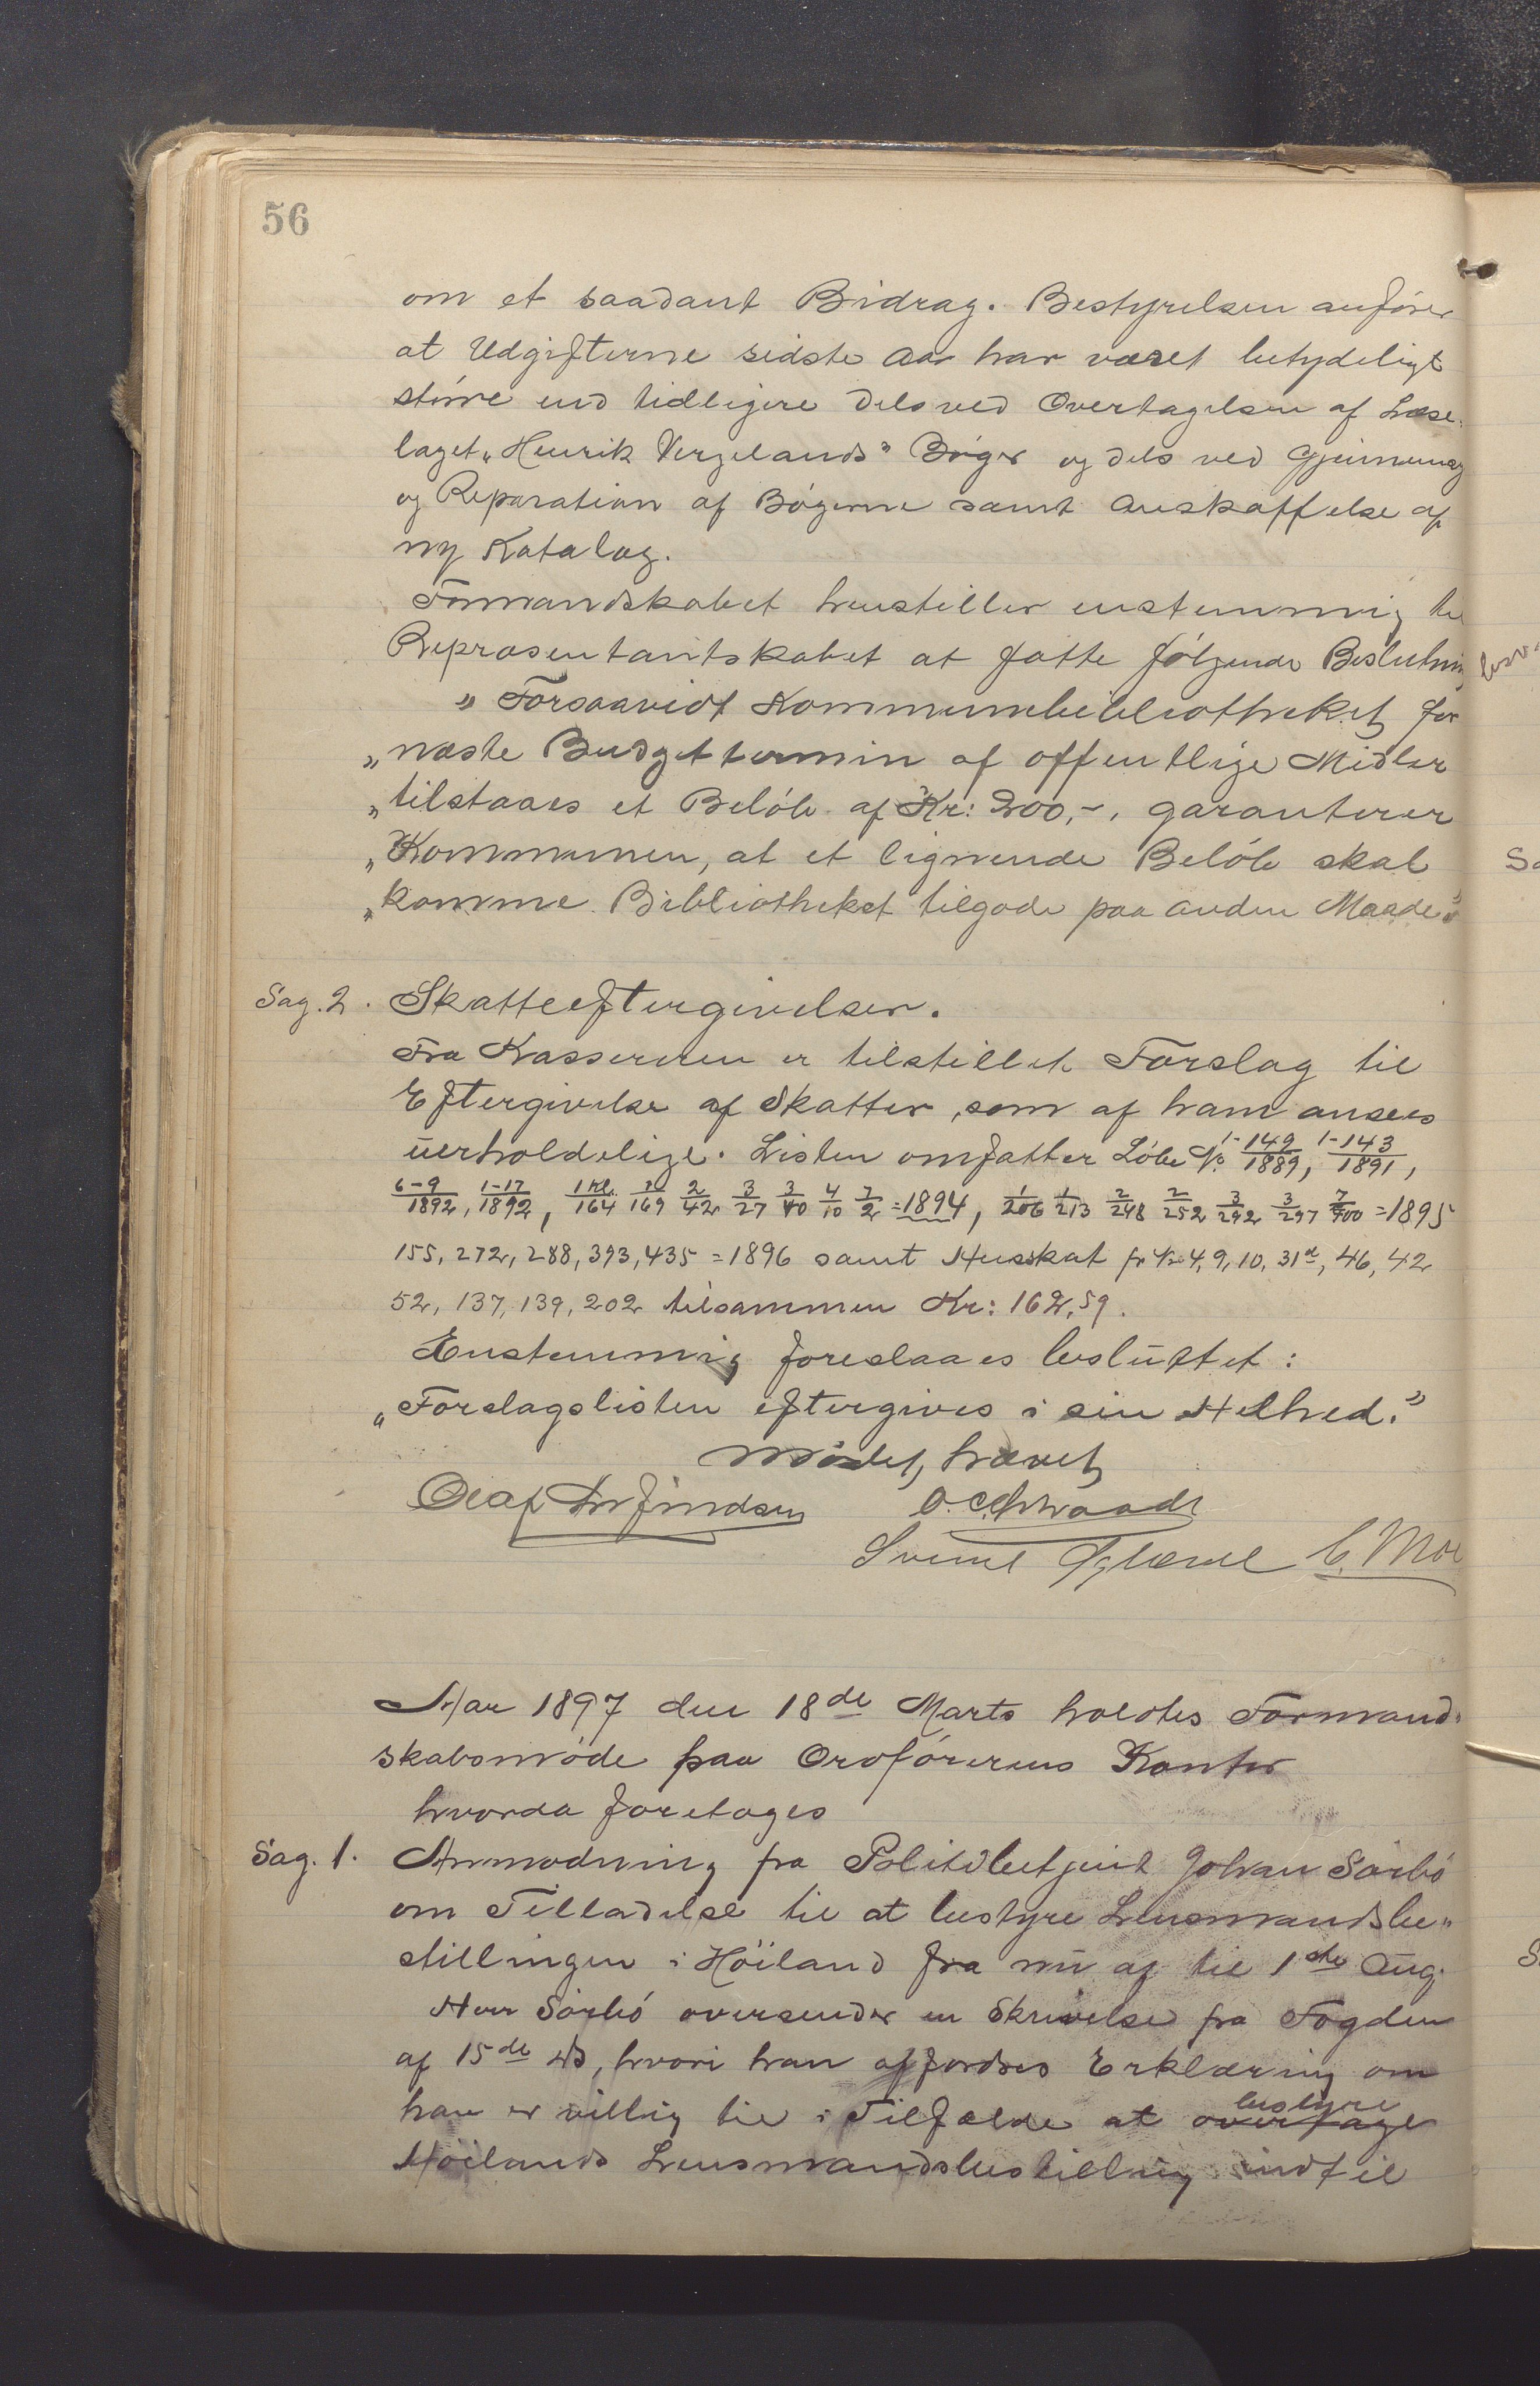 56
om et saadant Bidrag. Bestyrelsen anfører
at Udgifterne sidste Aar har været betydeligt
større end tidligere dels ved Overtagelsen af Læse-
laget „Henrik Vergelands" Bøger og dels ved Gjennemsyn
og Reparation af Bøgerne samt Anskaffelse af
ny Katalog.
Formandskabet henstiller enstemmig til
Repræsentantskabet at fatte følgende Beslutning
„Forsaavidt Kommunebibliotheket for
„næste Budgettermin af offentlige Midler
„tilstaaes et Beløb af Kr: 200,-, garanterer
„Kommunen, at et lignende Beløb skal
„komme Bibliotheket tilgode paa anden Maade."
Sag. 2. Skatteeftergivelser.
Fra Kassereren er tilstillet Forslag til
Eftergivelse af Skatter, som af ham ansees
uerholdelige. Listen omfatter Løbe No 1-149/1889, 1-143/1891,
6-9/1892, 1-17/1892, 1 kl./164 2/169 2/42 3/27 3/40 4/10 7/2 = 1894, 1/206 1/213 2/248 2/252 3/292 3/297 7/400 = 1895
155, 272, 288, 393, 435 = 1896 samt Husskat fr No 4, 9, 10, 31d, 46, 42
52, 137, 139, 202 tilsammen Kr: 162,59.
Enstemmig foreslaaes besluttet:
„Forslagslisten eftergives i sin Helhed."
Mødet hævet
Sveinel C. Moe
Aar 1897 den 18de Marts holdtes Formand-
skabsmøde paa Ordførerens Kontor
hvorda foretoges
Sag. 1. Anmodning fra Politibetjent Johan Sørbø
om Tilladelse til at bestyre Lensmandsbe-
stillingen i Höiland fra nu af til 1ste Aug.
Herr Sørbø oversender en Skrivelse fra Fogden
af 15de ds, hvori han affordres Erklæring om
han er villig til i Tilfælde at overtage bestyre
Höilands Lensmandsbestilling indtil